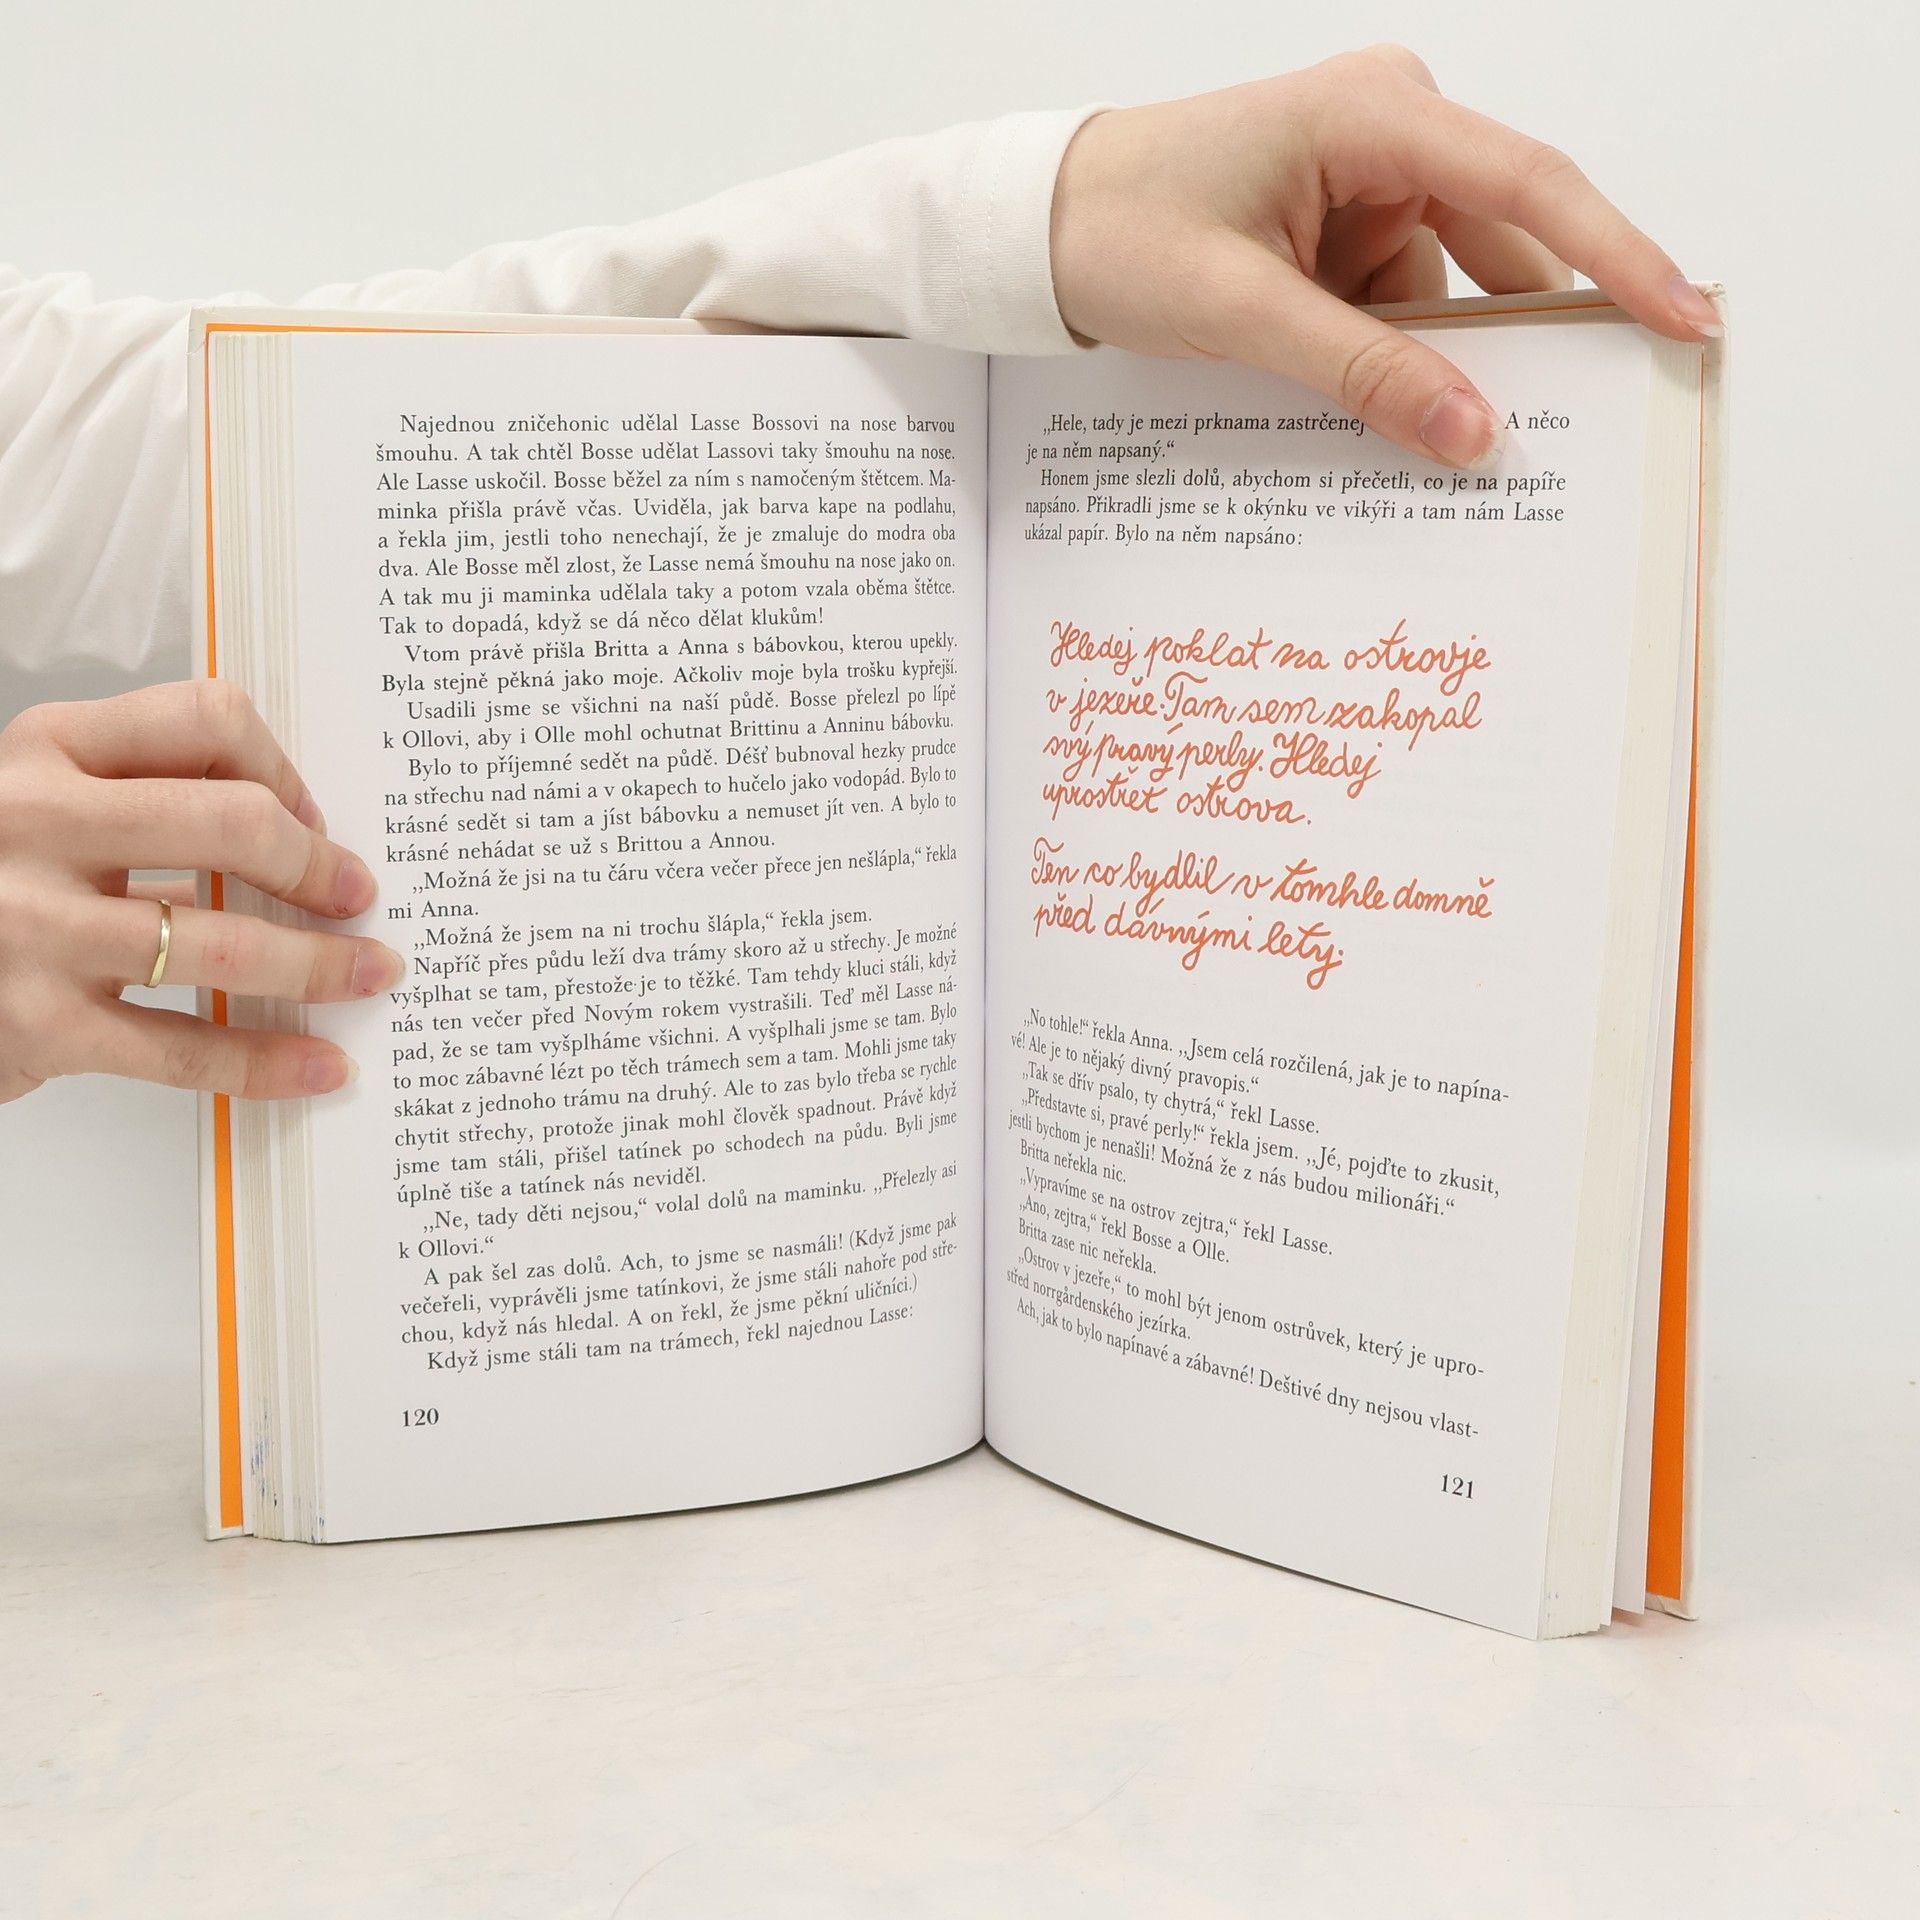 Najednou zničehonic udělal Lasse Bossovi na nose barvou
šmouhu. A tak chtěl Bosse udělat Lassovi taky šmouhu na nose.
Ale Lasse uskočil. Bosse běžel za ním s namočeným štětcem. Ma-
minka přišla právě včas. Uviděla, jak barva kape na podlahu,
a řekla jim, jestli toho nenechají, že je zmaluje do modra oba
dva. Ale Bosse měl zlost, že Lasse nemá šmouhu na nose jako on.
A tak mu ji maminka udělala taky a potom vzala oběma štětce.
Tak to dopadá, když se dá něco dělat klukům!
Vtom právě přišla Britta a Anna s bábovkou, kterou upekly.
Byla stejně pěkná jako moje. Ačkoliv moje byla trošku kypřejší.
Usadili jsme se všichni na naší půdě. Bosse přelezl po lípě
k Ollovi, aby i Olle mohl ochutnat Brittinu a Anninu bábovku.
Bylo to příjemné sedět na půdě. Déšť bubnoval hezky prudce
na střechu nad námi a v okapech to hučelo jako vodopád. Bylo to
krásné sedět si tam a jíst bábovku a nemuset jít ven. A bylo to
krásné nehádat se už s Brittou a Annou.
„Možná že jsi na tu čáru včera večer přece jen nešlápla,“ řekla
mi Anna.
„Možná že jsem na ni trochu šlápla,“ řekla jsem.
Napříč přes půdu leží dva trámy skoro až u střechy. Je možné
vyšplhat se tam, přestože je to těžké. Tam tehdy kluci stáli, když
nás ten večer před Novým rokem vystrašili. Teď měl Lasse ná-
pad, že se tam vyšplháme všichni. A vyšplhali jsme se tam. Bylo
to moc zábavné lézt po těch trámech sem a tam. Mohli jsme taky
skákat z jednoho trámu na druhý. Ale to zas bylo třeba se rychle
chytit střechy, protože jinak mohl člověk spadnout. Právě když
jsme tam stáli, přišel tatínek po schodech na půdu. Byli jsme
úplně tiše a tatínek nás neviděl.
„Ne, tady děti nejsou,“ volal dolů na maminku. „Přelezly asi
k Ollovi.“
A pak šel zas dolů. Ach, to jsme se nasmáli! (Když jsme pak
večeřeli, vyprávěli jsme tatínkovi, že jsme stáli nahoře pod stře-
chou, když nás hledal. A on řekl, že jsme pěkní uličníci.)
Když jsme stáli tam na trámech, řekl najednou Lasse:
120
„Hele, tady je mezi prknama zastrčenej A něco
je na něm napsaný.“
Honem jsme slezli dolů, abychom si přečetli, co je na papíře
napsáno. Přikradli jsme se k okýnku ve vikýři a tam nám Lasse
ukázal papír. Bylo na něm napsáno:
Hledej poklat na ostrovje
v jezeře. Tam sem zakopal
svý pravý perly. Hledej
uprostřet ostrova.
Ten co bydlil v tomhle domně
před dávnými lety.
„No tohle!“ řekla Anna. „Jsem celá rozčilená, jak je to napína-
vé! Ale je to nějaký divný pravopis.“
„Tak se dřív psalo, ty chytrá,“ řekl Lasse.
„Představte si, pravé perly!“ řekla jsem. „Jé, pojďte to zkusit,
jestli bychom je nenašli! Možná že z nás budou milionáři.“
Britta neřekla nic.
„Vypravíme se na ostrov zejtra,“ řekl Lasse.
„Ano, zejtra,“ řekl Bosse a Olle.
Britta zase nic neřekla.
„Ostrov v jezeře,“ to mohl být jenom ostrůvek, který je upro-
střed norrgårdenského jezírka.
Ach, jak to bylo napínavé a zábavné! Deštivé dny nejsou vlast-
121